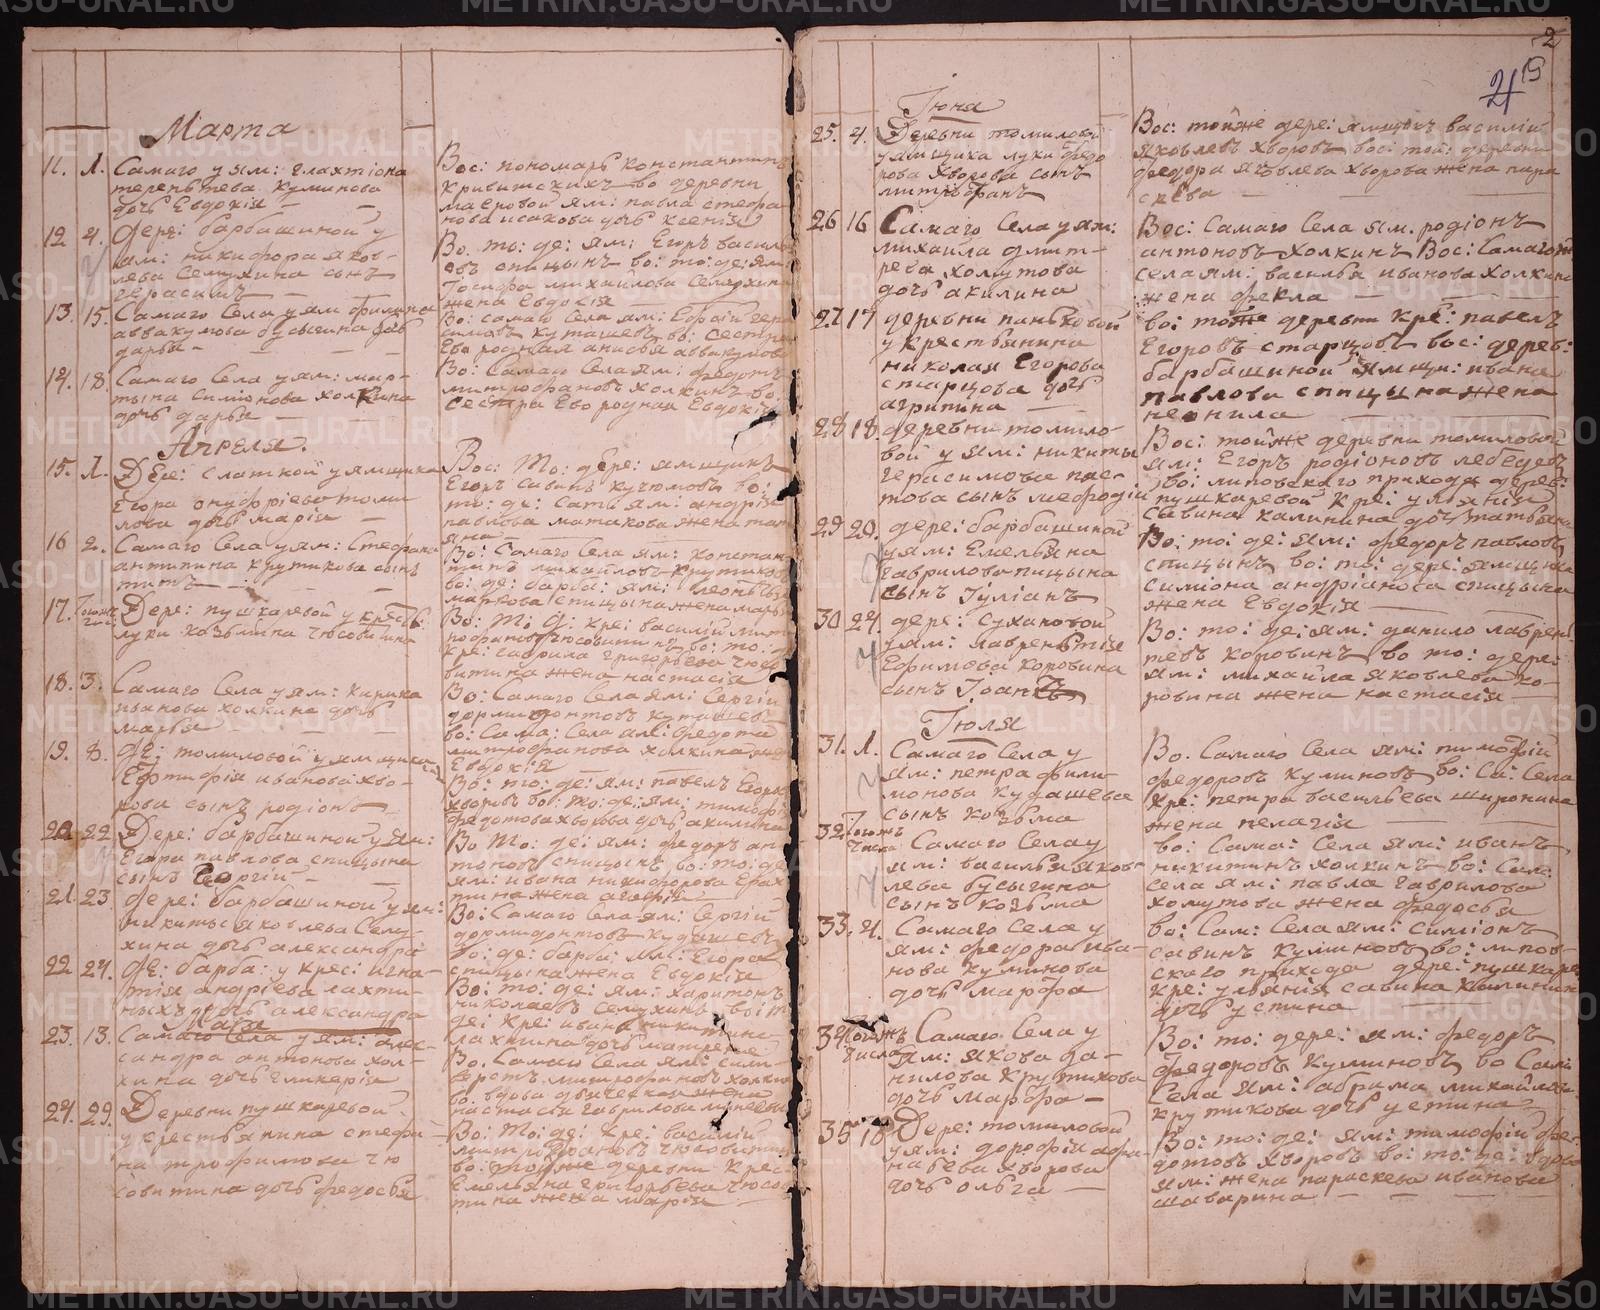 Марта
11. Л. Самаго у ям: Галахтіона
терентьева Куминова
дочь Евдокія
12 4. Дере: барбашиной у
ям: никифора яков-
лева Семухина сынъ
герасимъ
13. 15. Самаго Села у ям филипа
аввакумова бусыгина
дарья
14. 18. Самаго Села у ям: мар-
тына Симіонова холкина
дочь дарья
Апреля.
15. Л. Дере: слатной у ямщика
Егора онуфріева томи
лова дочь марія
16 2. Самаго Села у ям: Стефана
антипина крутикова сынъ
титъ
17. Тогожъ чис: Дере: пушкаревой у крест:
луки козьмина чюсовитина
18. 3. Самаго Села у ям: кирика
иванова холкина дочь
марья
19. 8. де: томиловой у ямщика
Евтифія иванова хво-
рова сынъ родіонъ
20 22 Дере: барбашиной у ям:
Егора павлова спицына
сынъ Георгій
21. 23. дере: барбашиной у ям:
никиты яковлева Сему-
хина дочь александра
22 24. де: барба: у крес: игна-
тія андріева лахти-
ныхъ дочь александра
Маія
23. 13. Самаго Села у ям: алек-
сандра антонова хол-
кина дочь гликерія
24. 29. Деревни пушкаревой
у крестьянина стефа-
на трофимова чю
совитина дочь федосья
Вос: пономарь константинъ
кривитскихъ во деревни
маеровой ям: павла стефа
нова исакова дочь ксенія
Во: то: де: ям: Егоръ василь
евъ спицынъ во: то: де: ям
Іосифа михайлова Семухина
жена Евдокія
Во: самаго села ям: Сергій
кугашевъ во: Сестра
Ево родная анисья аввакумова
Во: Самаго Села ям: федотъ
митрофановъ холкинъ во:
Сестра Ево родная Евдокія
Вос: То: дере: ямщикъ
Егоръ савинъ кучюмовъ во:
то: де: ям: андрія
павлова матакова жена тать
яна
Во: Самаго Села ям: констан
тинъ михайловъ крутиковъ
во: де: барба: ям: леонтья
маркова спицына жена марья
Во: То: де: кре: василій мит
рофановъ чюсовитинъ во: то:
кре: гаврила григорьева чюсо
витина жена настасія
Во: Самаго Села ям: Сергій
дормидонтовъ кугашевъ
во: Сама: Села ям: федота
митрофанова холкина жена
Евдокія
Во: то: де: ям: павелъ Егоровъ
хворовъ во: то: де: ям: тимофѣя
федотова хворова дочь акилина
Во то: де: ям: федоръ ан
тоновъ спицынъ во: то: де
ям: ивана никифорова
жена агафія
Во: Самаго Села ям: Сергій
дормидонтовъ кугашевъ
во: де: барба: ям: Егора
спицына жена Евдокія
Во: то: де: ям: харитонъ
николаевъ семухинъ во: то
де: кре: ивана никитина
лахтина дочь матрена
Во. Самаго Села ям: сили-
верстъ митрофановъ холкинъ
во: вдова жена
настасья гаврилова
Во: То: де: кре: василій
митрофановъ чюсовитинъ
во: тойже деревни крес:
Емельяна григорьева чюсо
витина жена марія
2
4 19
Іюня
25. 4. Деревни томиловой
у ямщика луки федо
рова хворова сынъ
митрофанъ
26 16 Самаго Села у ям:
михаила дмит-
рева холмутова
дочь акилина
27 17 деревни паньковой
у крестьянина
николая Егорова
старцова дочь
агрипина
28 18. деревни томило-
вой у ям: никиты
герасимова пле-
това сынъ мефодій
29 20. дере: барбашиной
у ям: Емельяна
гаврилова спицына
сынъ Іуліанъ
30 24. дере: сухановой
у ям: лаврентія
Ефимова коровина
сынъ Іоаннъ
Іюля
31. Л. Самаго Села у
ям: петра фили-
монова кугашева
сынъ козьма
32. Тогожъ числа Самаго Села у
ям: василья яков-
лева бусыгина
сынъ козьма
33. 4. Самаго Села у
ям: федора ива-
нова куминова
дочь марфа
34 Тогожъ числа Самаго Села у
ям: якова да-
нилова крутикова
дочь марфа
35 18 Дере: томиловой
у ям: дорофія афа-
насьева хворова
дочь ольга
Вос: тойже дере: ямщикъ василій
яковлевъ хворовъ вос: той: деревни
федора яковлева хворова жена пара
скева
Вос: Самаго Села ям. родіонъ
антоновъ холкинъ Вос: Самагожъ
села ям: василья иванова холкина
жена фекла
во: тойже деревни кре: павелъ
Егоровъ старцовъ вос: дерев:
барбашиной ямщи: ивана
павлова спицына жена
неонила
Вос: тойже деревни томиловой
ям: Егоръ родіоновъ лебедевъ
во: липовскаго прихода дерев:
пушкаревой кре: ульянія
савина калинина дочь татьяна
Во: то: де: ям: федоръ павловъ
спицынъ во: то: дере: ямщика
симіона андріянова спицына
жена Евдокія
Во: то: де: ям: данило лаврен
тевъ коровинъ во то: дере:
ям: михаила яковлева ко-
ровина жена настасія
Во. Самаго Села ям: тимофій
федоровъ куминовъ во: Са: Села
кре: петра васильева широнина
жена пелагія
во: Сама: Села ям: иванъ
никитинъ холкинъ во: Сам:
села ям: павла гаврилова
холмутова жена федосья
во: Сам: Села ям: симіонъ
савинъ куминовъ во: липов-
скаго прихода дере: пушкаре
кре: ульянія савина калинин
дочь устина
Во: то: дере: ям: федоръ
федоровъ куминовъ во Сам:
Села ям: абрама михайлова
крутикова дочь устина
Во: то: де: ям: тимофій фе-
дотовъ хворовъ во: то: де: вдова
ям: жена параскева иванова
шаварина
METRIKI.GASO-URAL.RU